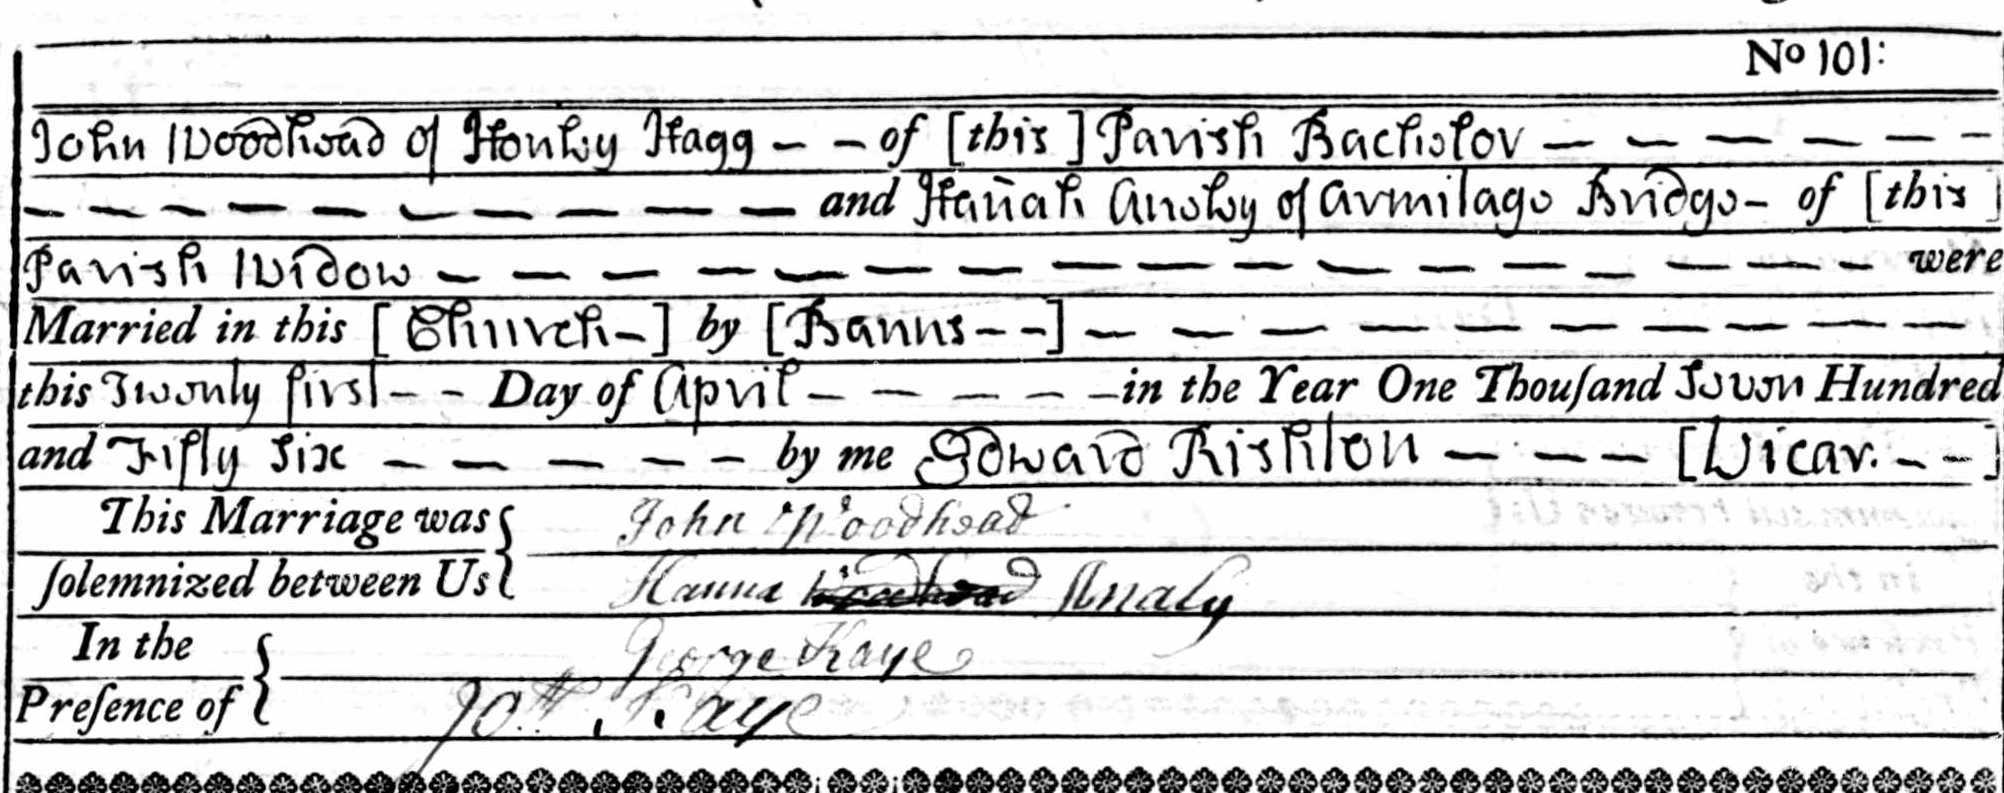 No 101:
John Woodhead of Honley Hagg - - of [this] Parish Bachelor - - - - - -
- - - - - - - - - and Hañah Ansley of Armitage Bridge - of [this]
Parish Widow - - - - - - - - - - - - - - - - were
Married in this [Church-] by [Banns--] - - - - - - - - - -
this Twenty first - - Day of April - - - - - in the Year One Thouſand Seven Hundred
and Fifty Six - - - - - by me Edward Rishton - - - [Vicar. - -]
This Marriage was { John Woodhead
ſolemnized between Us Hanna Woodhead Analy
In the { George Kaye
Preſence of Jotħ. Kaye